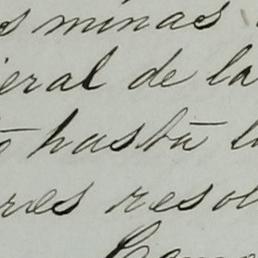 s minas
eral de la
hasta l
res resol